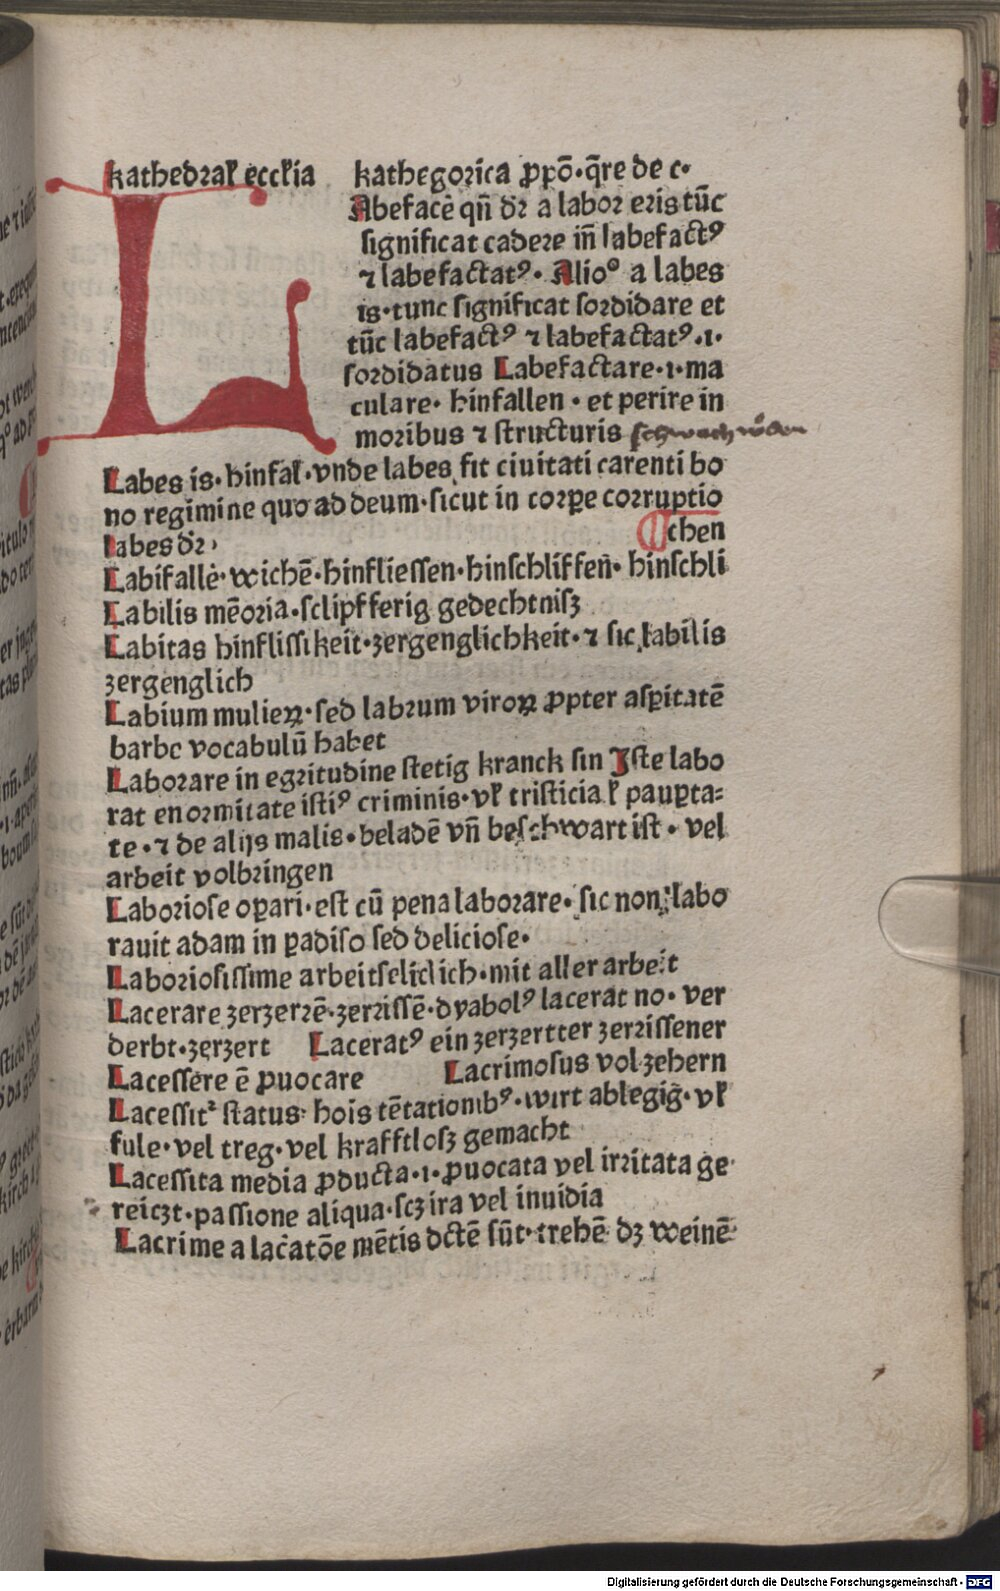 kathedral ecclia kathegorica ꝓpō·q̄re de c·
L Abefacē qn̄ dr̄ a labor eris tūc
significat cadere in̄ labefactꝰ
⁊ labefactatꝰ· Alioº a labes
is·tunc significat sordidare et
tūc labefactꝰ ⁊ labefactatꝰ·i·
sordidatus Labefactare·i·ma
culare· hinfallen· et perire in
moribus ⁊ structuris schwach w̄den
Labes is·hinfal·vnde labes fit ciuitati carenti bo
no regimine quo ad deum·sicut in corꝑe corruptio
labes dr̄· chen
Labifallē·wichē·hinfliessen·hinschliffen̄·hinschli
Labilis mēoria·sclipfferig gedechtnisz
Labitas hinflissikeit·zergenglichkeit·⁊ sic labilis
zergenglich
Labium mulieꝝ·sed labrum viroꝝ ꝓpter asꝑitatē
barbe vocabulū habet
Laborare in egritudine stetig kranck sin Iste labo
rat enormitate istiꝰ criminis·vł tristicia ł pauꝑta=
te·⁊ de alijs malis·beladē vn̄ beschwart ist·vel
arbeit volbringen
Laboriose oꝑari·est cū pena laborare·sic non labo
rauit adam in ꝑadiso sed deliciose·
Laboriosissime arbeitseliclich·mit aller arbeit
Lacerare zerzerrē·zerrissē·dyabolꝰ lacerat no·ver
derbt·zerzert Laceratꝰ ein zerzertter zerrissener
Lacessere ē ꝓuocare Lacrimosus vol zehern
Lacessit² status hoīs tētationibꝰ·wirt ablegiḡ·vł
fule·vel treg·vel krafftlosz gemacht
Lacessita media ꝓducta·i·ꝓuocata vel irritata ge
reiczt·passione aliqua·scz ira vel inuidia
Lacrime a lac̄atōe mētis dctē sūt·trehē dz weinē
Digitalisierung gefördert durch die Deutsche Forschungsgemeinschaft · DFG